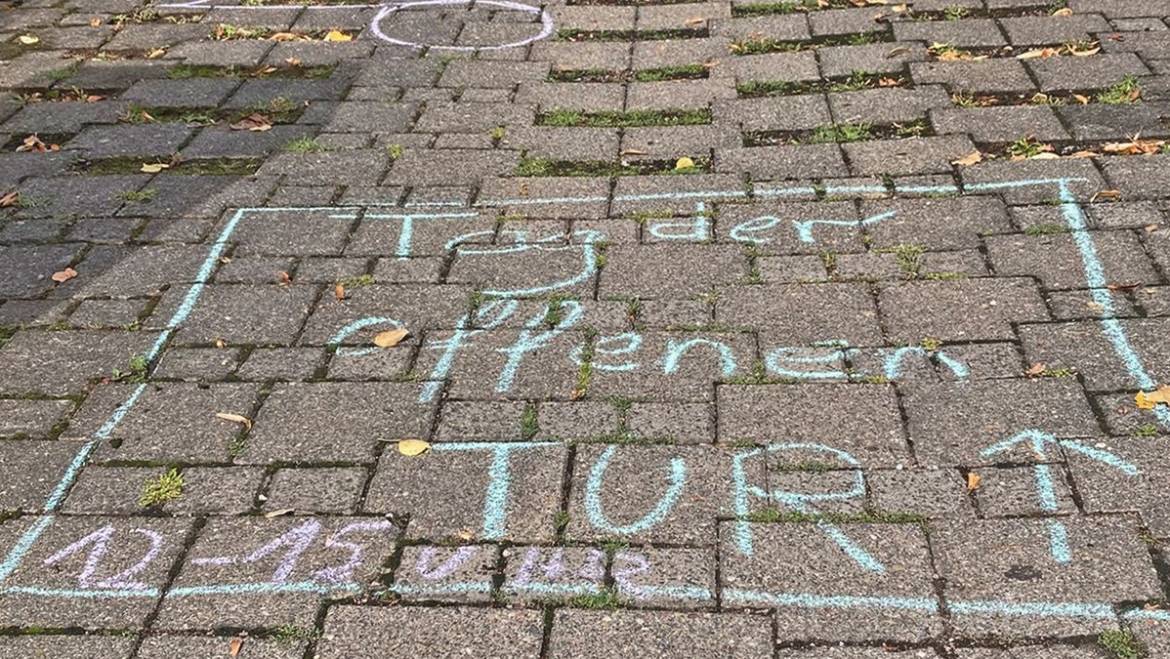 Tag der
offenen
TUR ↑
12-15 Uhr